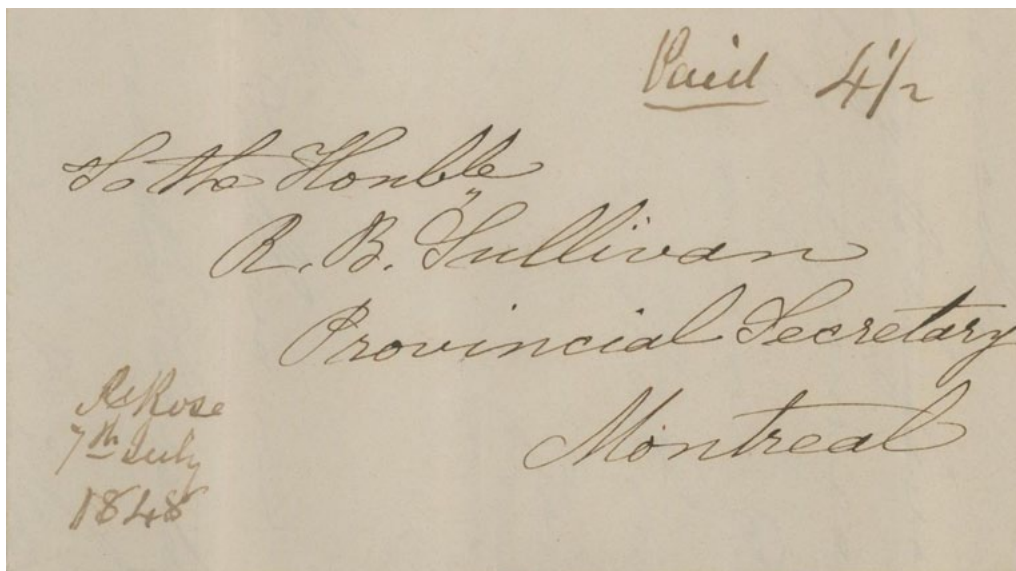 Paid 4 1/2
To the Honble
R. B. Sullivan
Provincial Secretary
Montreal
Rose
7th July
1848